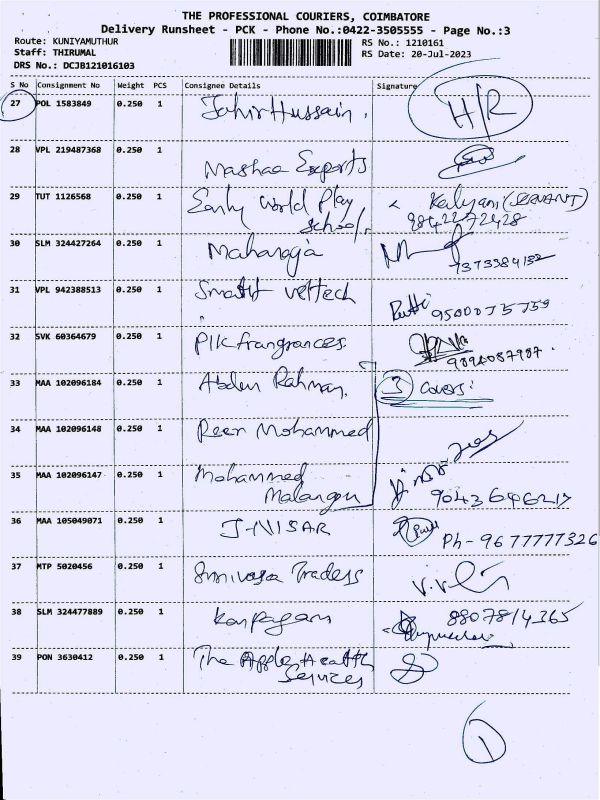 THE PROFESSIONAL COURIERS, COIMBATORE
Delivery Runsheet - PCK - Phone No.:0422-3505555 - Page No.:3
Route: KUNIYAMUTHUR
Staff: THIRUMAL
DRS No.: DCJB121016103
RS No.: 1210161
RS Date: 20-Jul-2023
S No Consignment No Weight PCS Consignee Details Signature
27 POL 1583849 0.250 1 Jahir Hussain. H/R
28 VPL 219487368 0.250 1 Mashaa Exports
29 TUT 1126568 0.250 1 Early World Play Kalyani (SERVANT)
School. 9842272428
30 SLM 324427264 0.250 1 Maharaja
7373384132
31 VPL 942388513 0.250 1 vettech
9500075759
32 SVK 60364679 0.250 1 PIK frangrances.
9894087987.
33 MAA 102096184 0.250 1 Abdur Rahman. 3 Covers:
34 MAA 102096148 0.250 1 Peer Mohammed
35 MAA 102096147 0.250 1 Mohammed
Malangu 9043646217
36 MAA 105049071 0.250 1 J-NISAR
Ph-9677777326
37 MTP 5020456 0.250 1 Srinivasa Traders
38 SLM 324477889 0.250 1 Karpagam 8807814365
39 PON 3630412 0.250 1 The Apple Health
Services
1